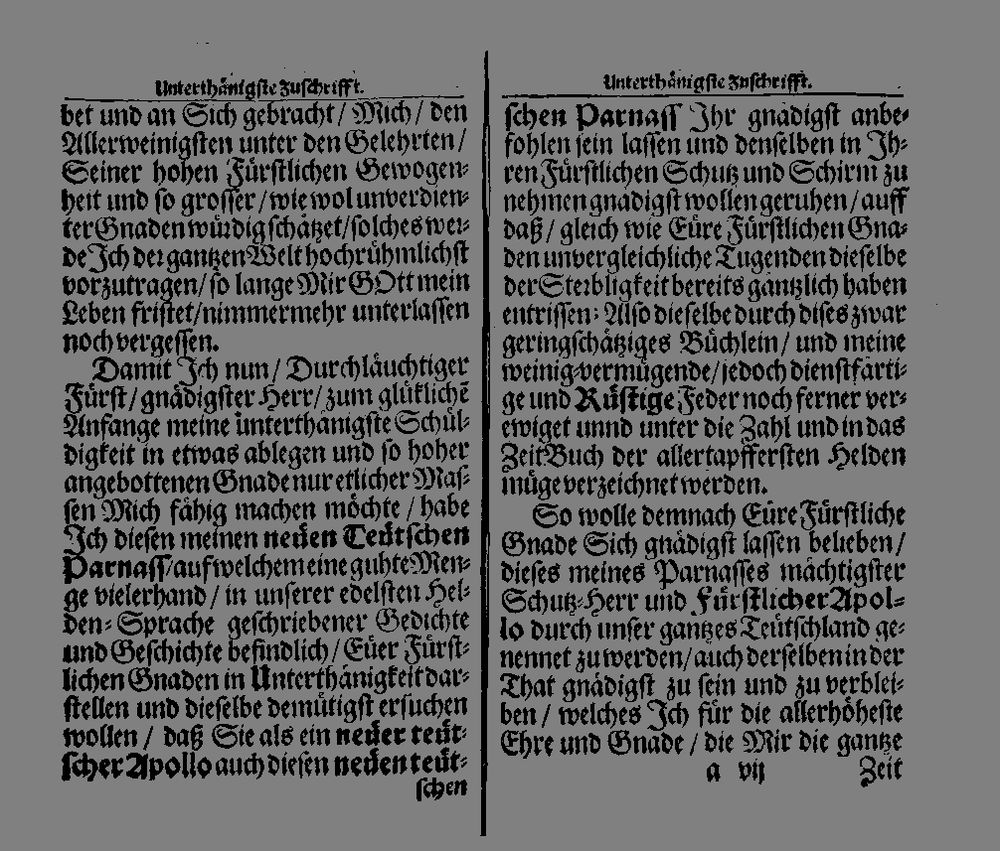 Unterthänigste Zuschrifft.
bet und an Sich gebracht / Mich / den
Allerweinigsten unter den Gelehrten /
Seiner hohen Fürstlichen Gewogen-
heit und so grosser / wie wol unverdien-
ter Gnaden würdig schätzet / solches wer-
de Ich der gantzen Welt hochrühmlichst
vorzutragen / so lange Mir GOtt mein
Leben fristet / nimmermehr unterlassen
noch vergessen.
Damit Ich nun / Durchläuchtiger
Fürst / gnädigster Herr / zum glüklichē
Anfange meine unterthänigste Schül-
digkeit in etwas ablegen und so hoher
angebottenen Gnade nur etlicher Mas-
sen Mich fähig machen möchte / habe
Ich diesen meinen neüen Teütschen
Parnass / auf welchem eine guhte Men-
ge vielerhand / in unserer edelsten Hel-
den-Sprache geschriebener Gedichte
und Geschichte befindlich / Eüer Fürst-
lichen Gnaden in Unterthänigkeit dar-
stellen und dieselbe demütigst ersuchen
wollen / daß Sie als ein neüer teüt-
scher Apollo auch diesen neüen teüt-
schen
Unterthänigste Zuschrifft.
schen Parnass Ihr gnädigst anbe-
fohlen sein lassen und denselben in Ih-
ren Fürstlichen Schutz und Schirm zu
nehmen gnädigst wollen geruhen / auff
daß / gleich wie Eüre Fürstlichen Gna-
den unvergleichliche Tugenden dieselbe
der Sterbligkeit bereits gäntzlich haben
entrissen: Also dieselbe durch dises zwar
geringschätziges Büchlein / und meine
weinig-vermügende / jedoch dienstfärti-
ge und Rüstige Feder noch ferner ver-
ewiget unnd unter die Zahl und in das
ZeitBuch der allertapffersten Helden
müge verzeichnet werden.
So wolle demnach Eüre Fürstliche
Gnade Sich gnädigst lassen belieben /
dieses meines Parnasses mächtigster
Schutz-Herr und Fürstlicher Apol-
lo durch unser gantzes Teütschland ge-
nennet zu werden / auch derselben in der
That gnädigst zu sein und zu verblei-
ben / welches Ich für die allerhöheste
Ehre und Gnade / die Mir die gantze
a vij Zeit